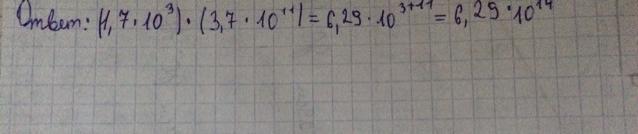 Ответ: (1,7·10³)·(3,7·10¹¹)=6,29·10³⁺¹¹=6,29·10¹⁴